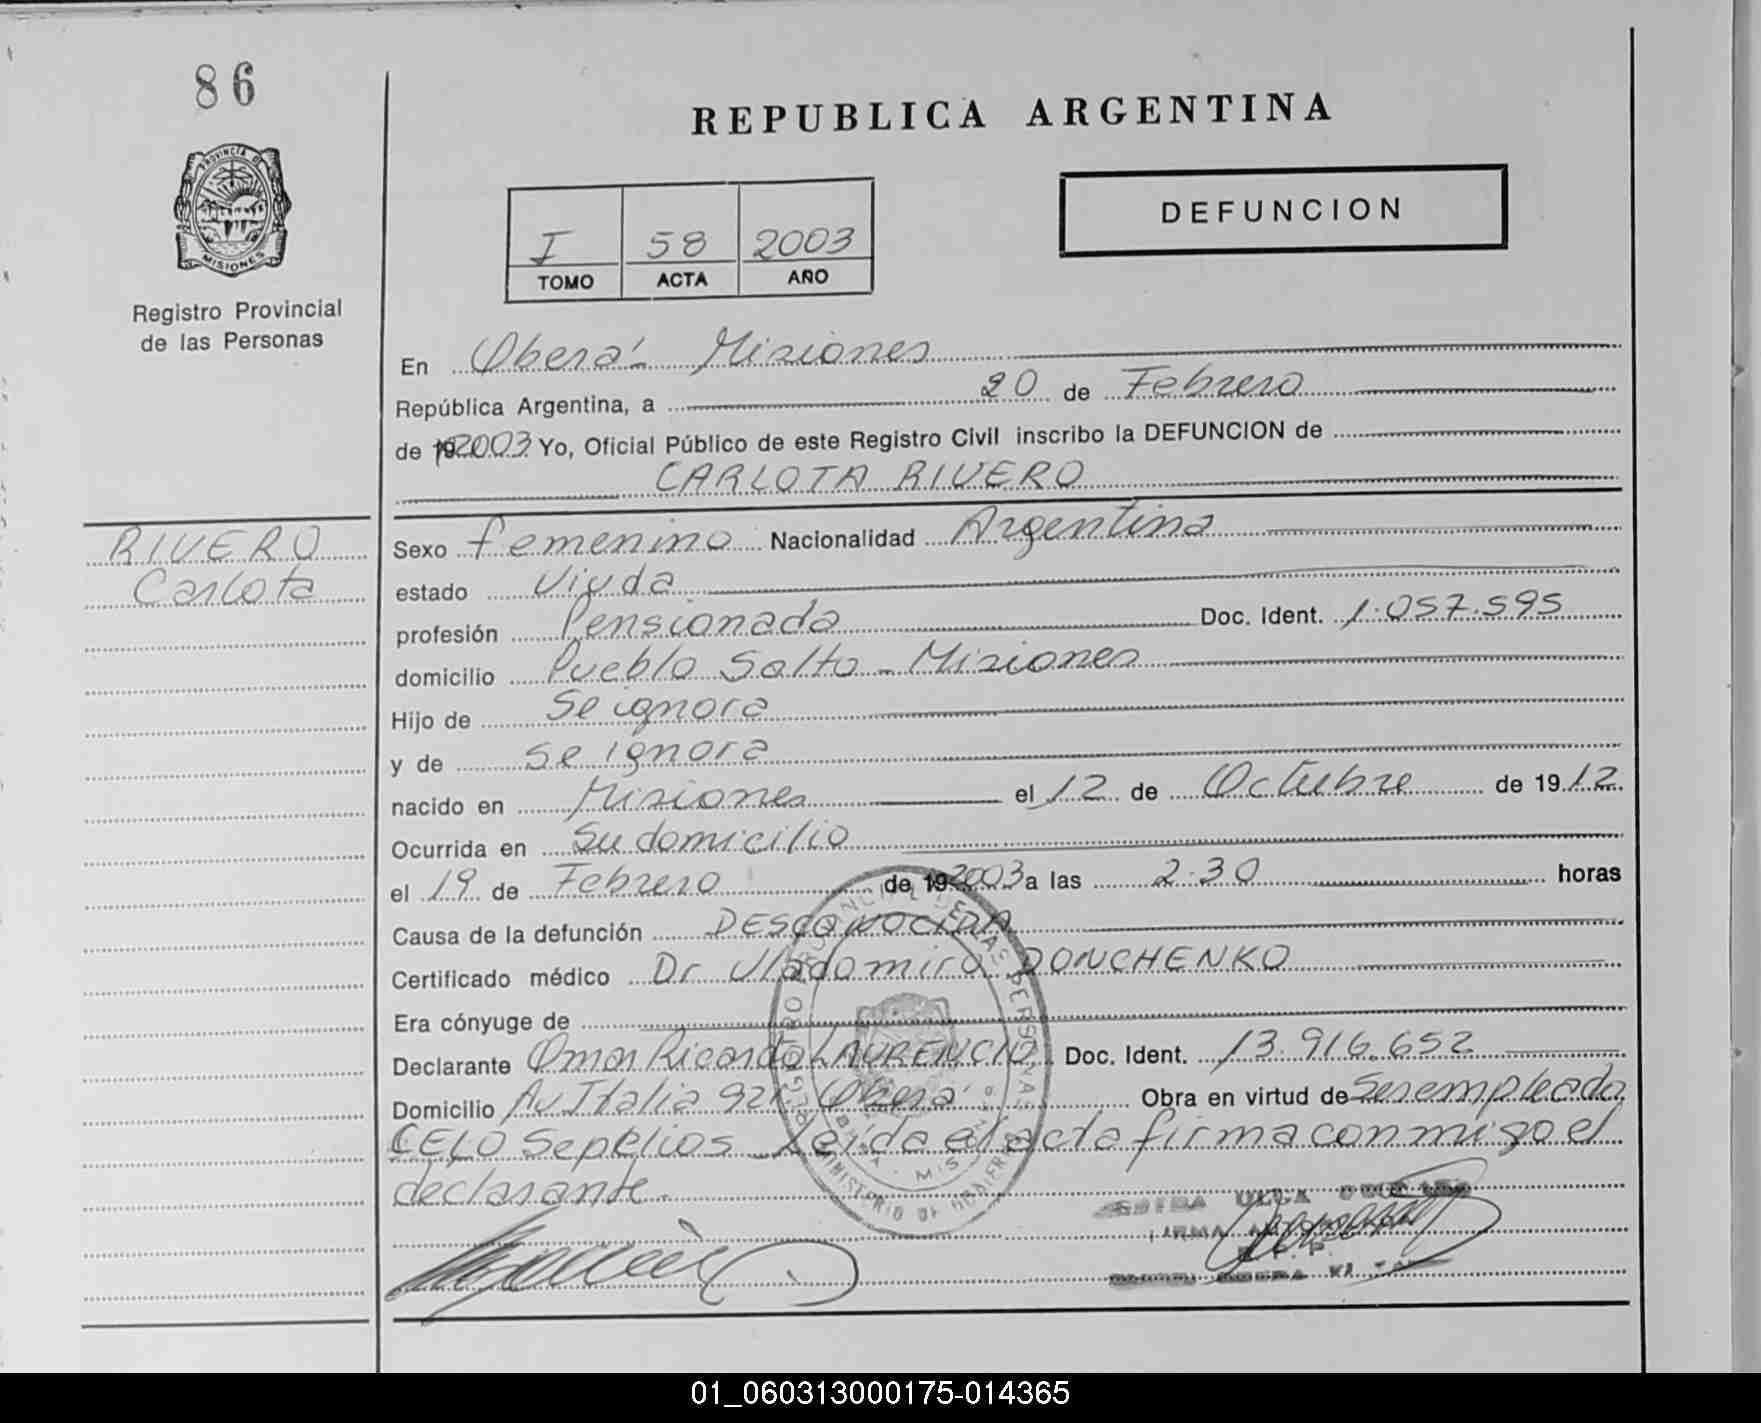 86
PROVINCIA DE
MISIONES
Registro Provincial
de las Personas
REPUBLICA ARGENTINA
I 58 2003
TOMO ACTA AÑO
DEFUNCION
En Oberá - Misiones
República Argentina, a 20 de Febrero
de 19 2003 Yo, Oficial Público de este Registro Civil inscribo la DEFUNCION de
CARLOTA RIVERO
RIVERO
Carlota
Sexo femenino Nacionalidad Argentina
estado Viuda
profesión Pensionada Doc. Ident. 1.057.595
domicilio Pueblo Salto - Misiones
Hijo de Se ignora
y de se ignora
nacido en Misiones el 12 de Octubre de 1912
Ocurrida en Su domicilio
el 19 de Febrero de 19 2003 a las 2.30 horas
Causa de la defunción DESCONOCIDA
Certificado médico Dr Vladomiro DONCHENKO
Era cónyuge de
Declarante Omar Ricardo LAURENCIO Doc. Ident. 13.916.652
Domicilio Av Italia Oberá Obra en virtud de Ser empleado
CELO Sepelios - Leída el acta firma conmigo el
declarante.
REGISTRO PROVINCIAL DE LAS PERSONAS
MINISTERIO DE GOBIERNO
OBERA - MIS
01_060313000175-014365